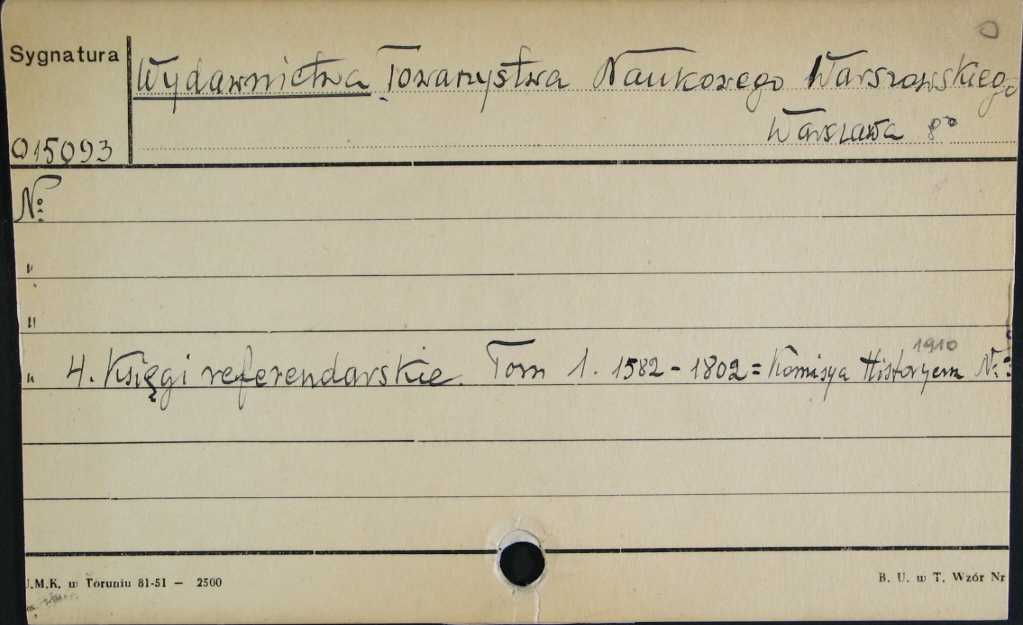 Sygnatura
Wydawnictwa Towarzystwa Naukowego Warszawskiego
Warszawa 8°
015093
№
"
"
1910
" 4. Księgi referendarskie. Tom 1. 1582 - 1802 = Komisya Historyczna №
U.M.K. w Toruniu 81-51 — 2500
B. U. w T. Wzór Nr